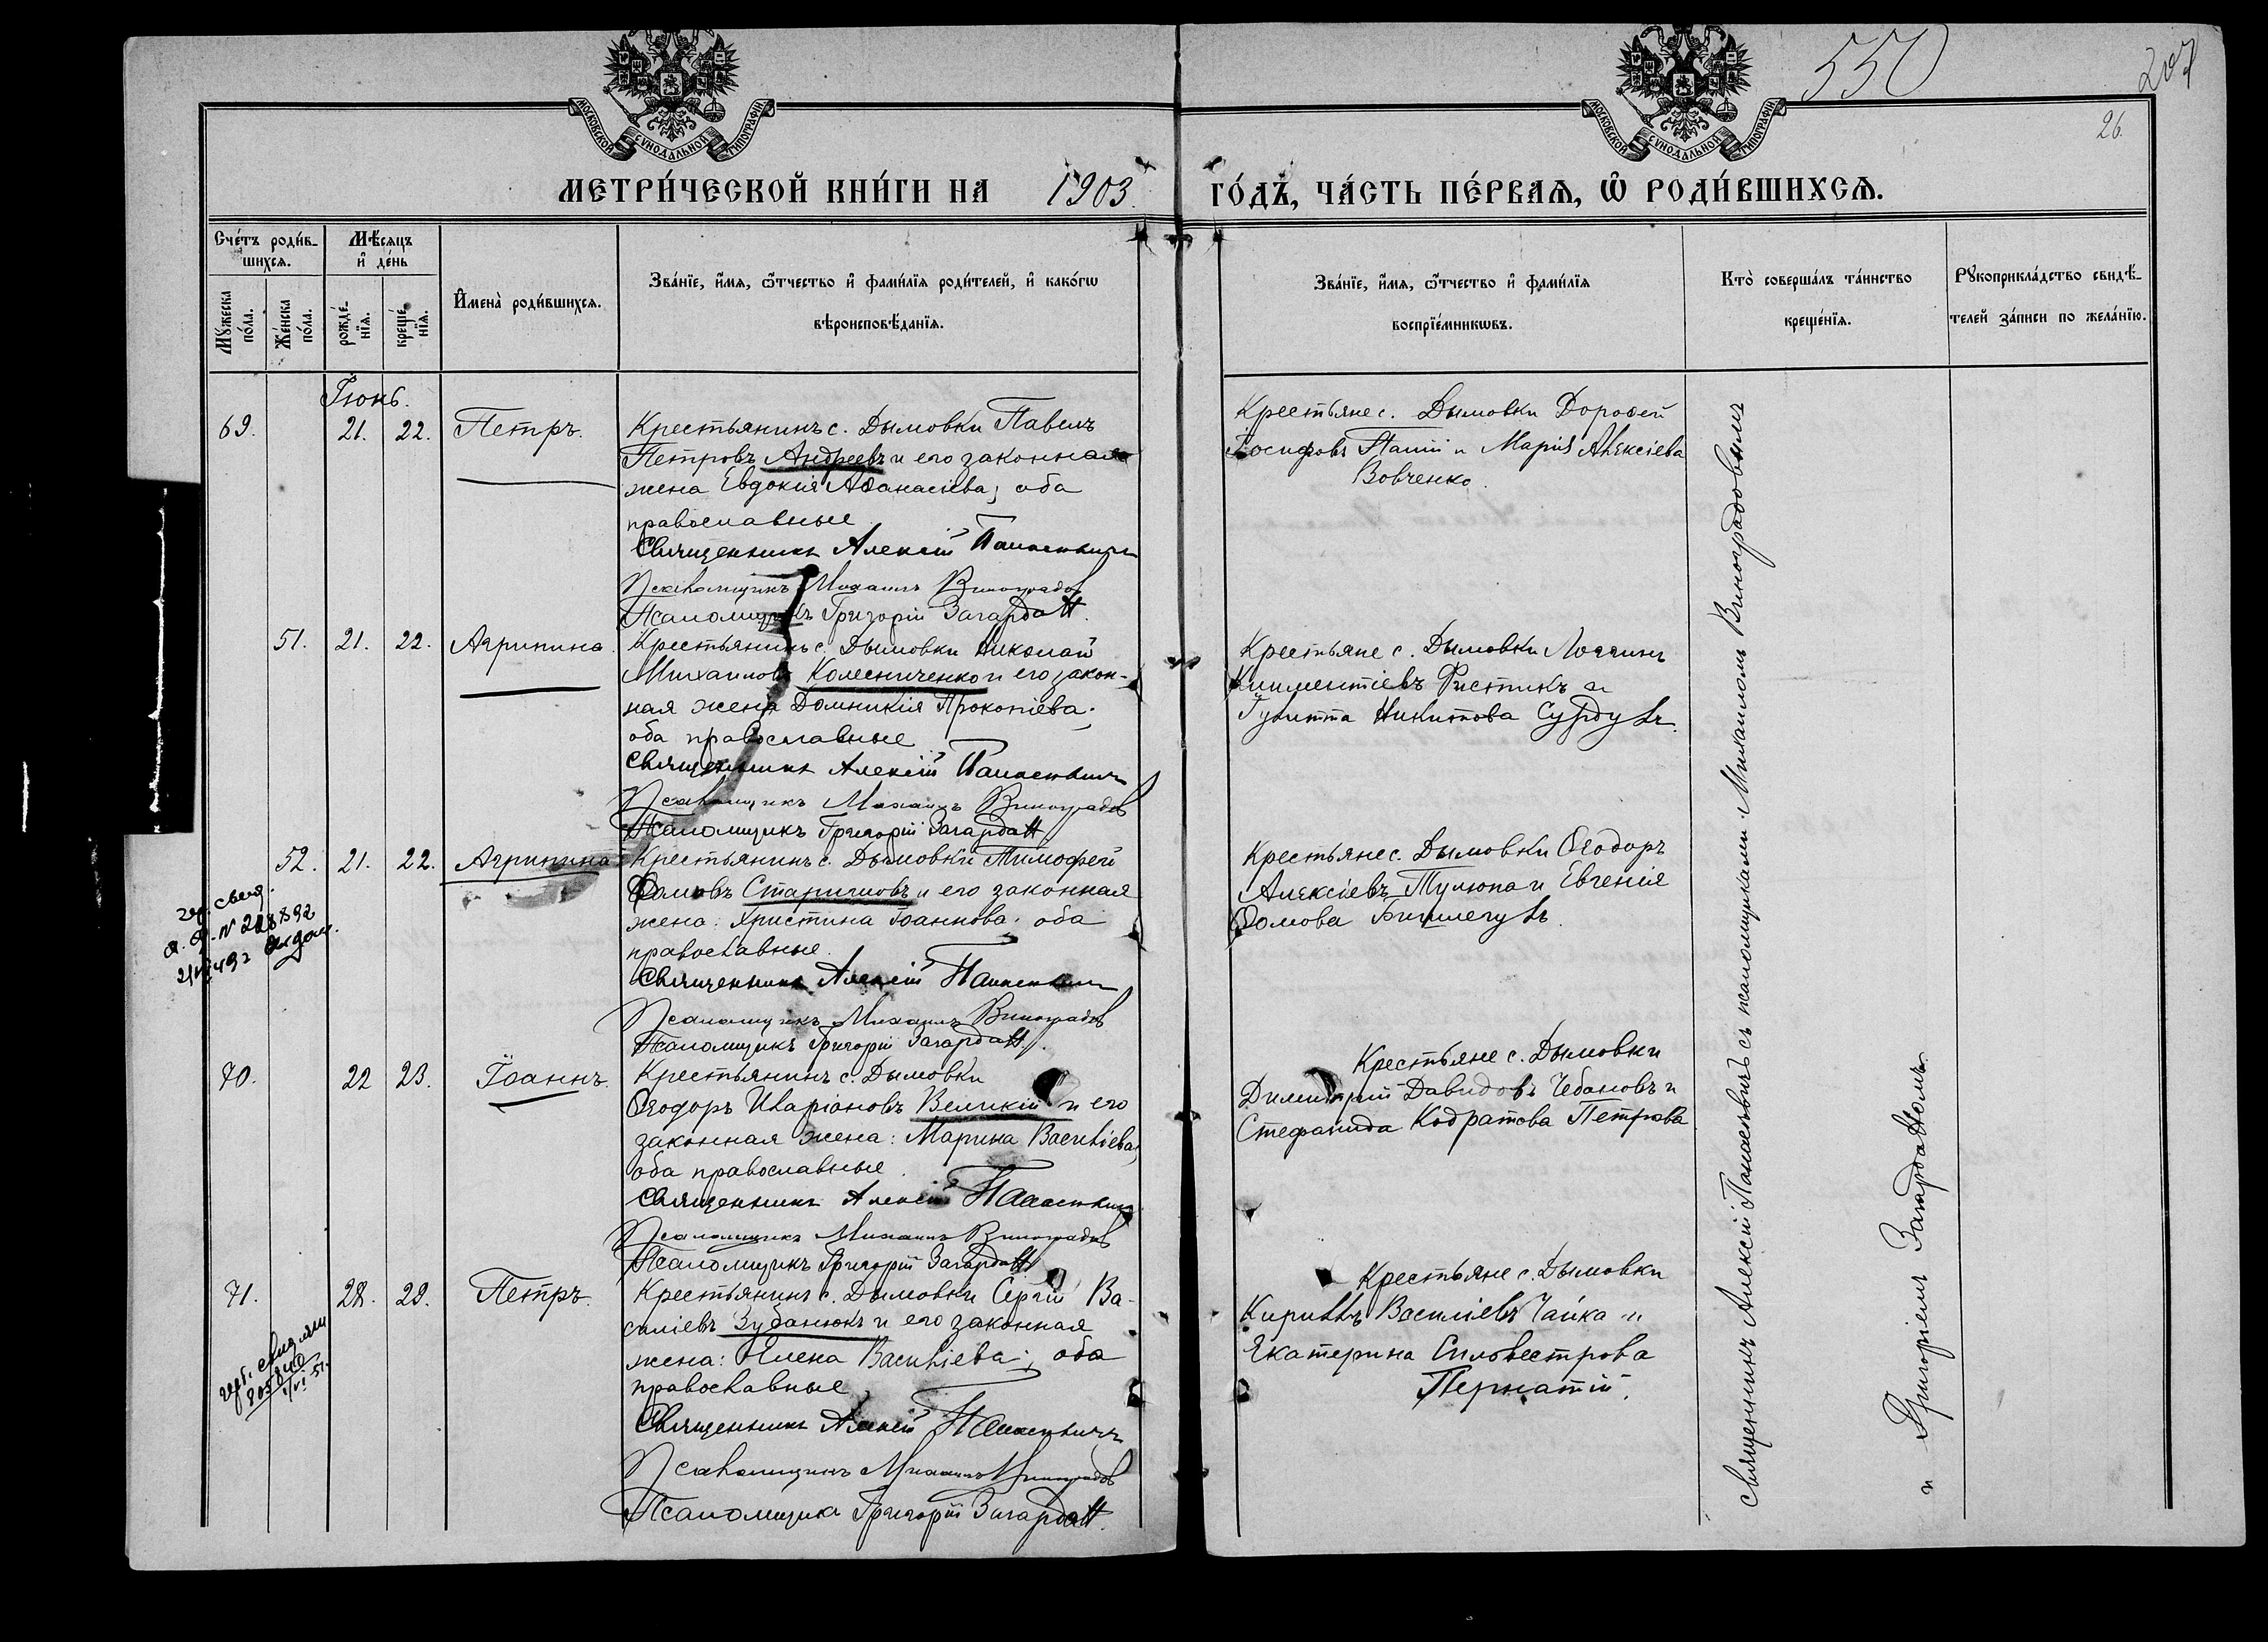 550
207
26.
МОСКОВСКОЙ СѴНОДАЛЬНОЙ ТИПОГРАФІИ
МОСКОВСКОЙ СѴНОДАЛЬНОЙ ТИПОГРАФІИ
МЕТРИ́ЧЕСКОЙ КНИ́ГИ НА 1903. ГО́ДЪ, ЧА́СТЬ ПЕ́РВАѦ, Ѡ҆ РОДИ́ВШИХСѦ.
Сче́тъ роди́в-
шихсѧ.
Мꙋжеска
по́ла.
Же́нска
по́ла.
Мѣ́сѧцъ
и҆ де́нь
рожде́-
нїѧ.
креще́-
нїѧ.
И҆мена̀ роди́вшихсѧ.
Зва́нїе, и҆́мѧ, ѻ҆́тчество и҆ фами́лїѧ роди́телей, и҆ како́гѡ
вѣроисповѣ́данїѧ.
Зва́нїе, и҆́мѧ, ѻ҆́тчество и҆ фами́лїѧ
воспрїе́мникѡвъ.
Кто̀ соверша́лъ та́инство
креще́нїѧ.
Рꙋкоприкла́дство свидѣ́-
телей за́писи по жела́нїю.
Іюнь.
69. 21. 22. Петръ.
Крестьянинъ с. Дымовки Павелъ
Петровъ Андреевъ и его законная
жена Евдокія Аѳанасіева, оба
православные.
Священникъ Алексій
Псаломщикъ Михаилъ Виноградов
Псаломщикъ Григорій Загардан
Крестьяне с. Дымовки Дороѳей
Іосифовъ Паній и Марія Алексіева
Вовченко.
51. 21. 22. Агрипина.
Крестьянинъ с. Дымовки Николай
Михаиловъ Колесниченко и его закон-
ная жена Домникія Прокопіева;
оба православные
Священникъ Алексій
Псаломщикъ Михаилъ Виноградов
Псаломщикъ Григорій Загардан
Крестьяне с. Дымовки Логгинъ
Климентіевъ Ристикъ и
Гулитта Никитова Сурдулъ.
52. 21. 22. Агрипина
Крестьянинъ с. Дымовки Тимофей
Ѳомовъ Старишовъ и его законная
жена: Христина Іоаннова; оба
православные.
Священникъ Алексій
Псаломщикъ Михаилъ Виноградов
Псаломщикъ Григорій Загардан
Крестьяне с. Дымовки Ѳеодоръ
Алексіевъ Тулюпа и Евгенія
Ѳомова
70. 22 23. Іоаннъ.
Крестьянинъ с. Дымовки
Ѳеодоръ Иларіоновъ Великій и его
законная жена: Марина Василіева;
оба православные.
Священникъ Алексій
Псаломщикъ Михаилъ Виноградов
Псаломщикъ Григорій Загардан
Крестьяне с. Дымовки
Димитрій Давидовъ Чебановъ и
Стефанида Кодратова Петрова
71. 28. 29. Петръ.
Крестьянинъ с. Дымовки Сергій Ва-
силіевъ Зубанюкъ и его законная
жена: Елена Василіева; оба
православные
Священникъ Алексій
Псаломщикъ Михаилъ Виноградов
Псаломщикъ Григорій Загардан
Крестьяне с. Дымовки
Кириллъ Василіевъ Чайка и
Екатерина Сильвестрова
Пернатій.
Священникъ Алексій съ псаломщиками Михаиломъ Виноградовымъ
и Григоріемъ